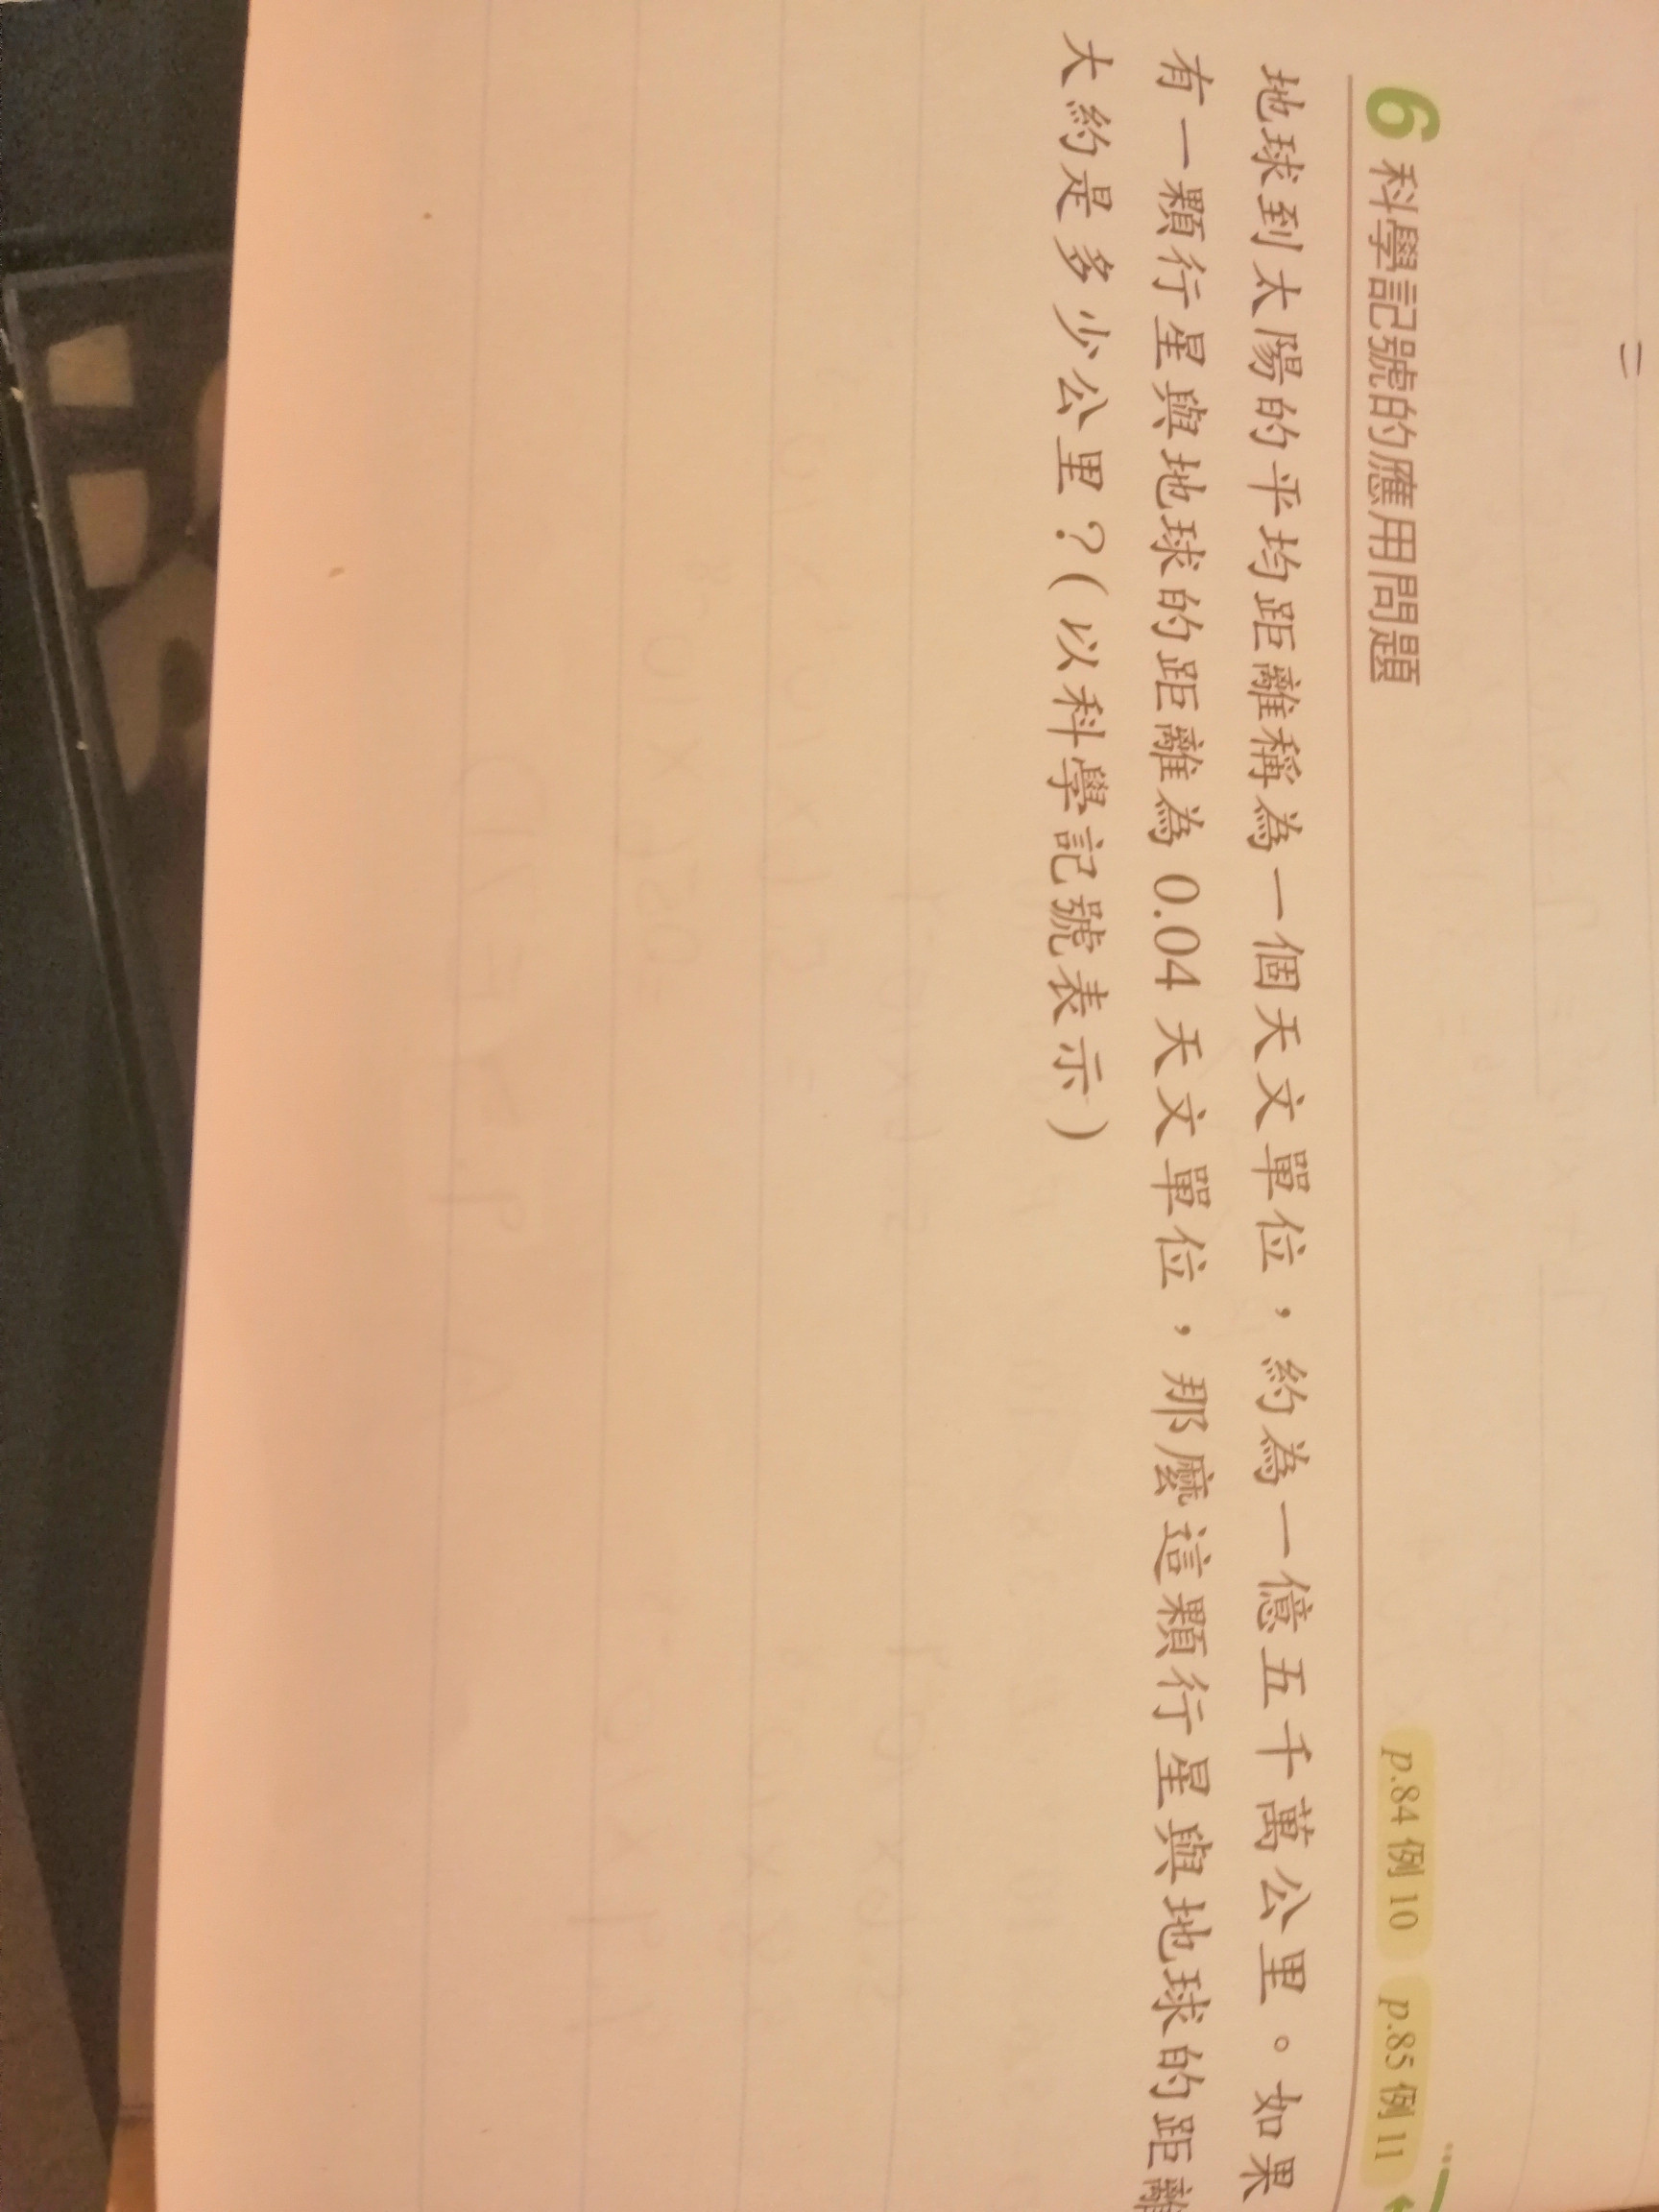 6 科學記號的應用問題 p.84 例 10 p.85 例 11
地球到太陽的平均距離稱為一個天文單位，約為一億五千萬公里。如果
有一顆行星與地球的距離為 0.04 天文單位，那麼這顆行星與地球的距離
大約是多少公里？(以科學記號表示)